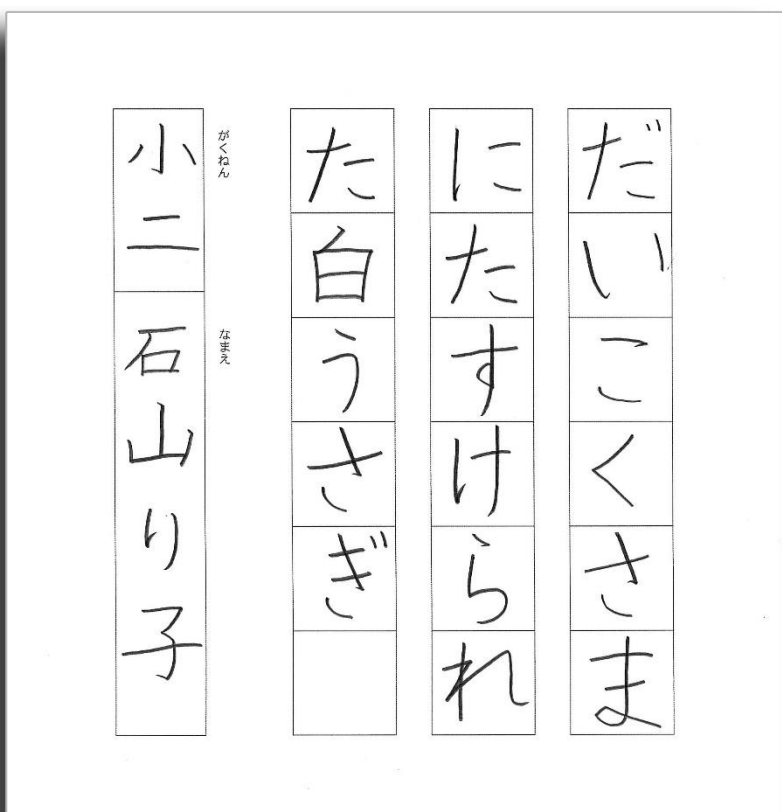 だいこくさま
にたすけられ
た白うさぎ
がくねん
小二
なまえ
石山り子